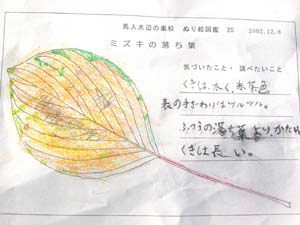 馬入水辺の楽校　ぬり絵図鑑　20　2002.12.8
ミズキの落ち葉
気づいたこと・調べたいこと
くきは、太く、赤茶色
表の手ざわりはツルツル。
ふつうの落ち葉より、かたい
くきは長い。